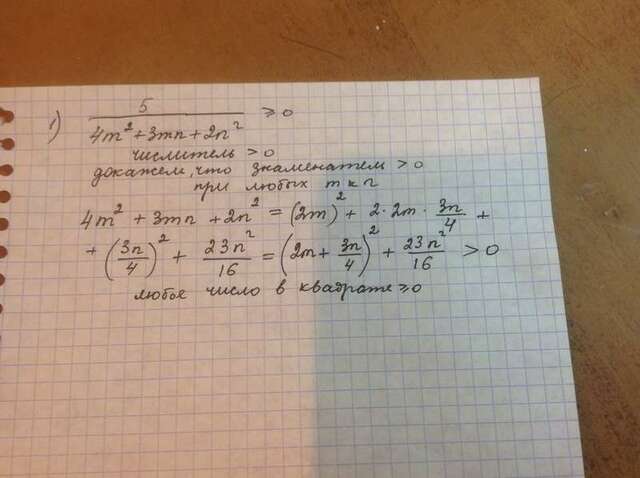 1) 5/(4m² + 3mn + 2n²) ≥ 0
числитель > 0
докажем, что знаменател > 0
при любых m и n
4m² + 3mn + 2n² = (2m)² + 2·2m· 3n/4 +
+ (3n/4)² + 23n²/16 = (2m + 3n/4)² + 23n²/16 > 0
любое число в квадрате ≥ 0